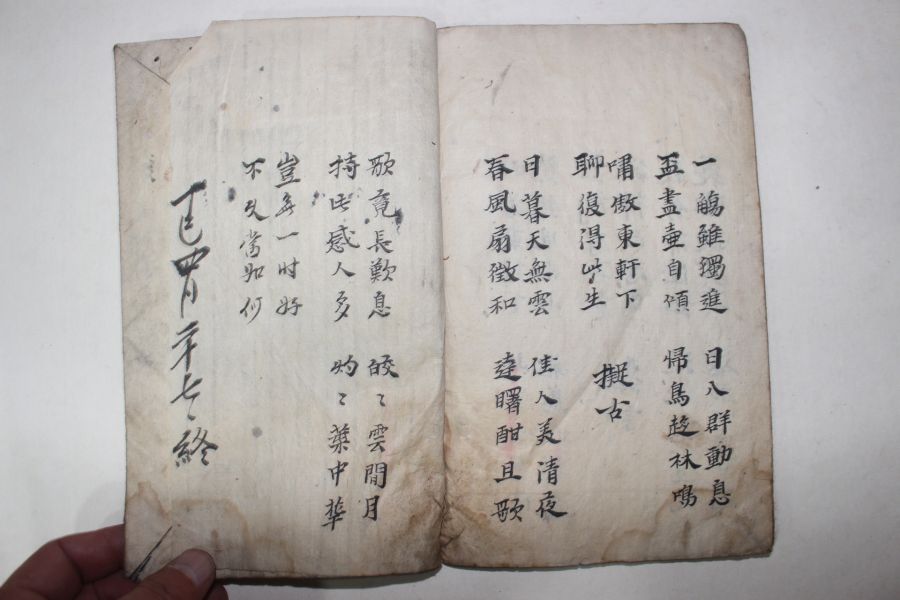 一觴雖獨進 日入群動息
盃盡壺自傾 帰鳥趍林鳴
嘯傲東軒下
聊復得此生 擬古
日暮天無雲 佳人美清夜
春風扇微和 達曙酣且歌
歌竟長歎息 皎〻雲閒月
持此感人多 灼〻葉中華
豈无一时好
不久當如何
丁巳四月二十七日終